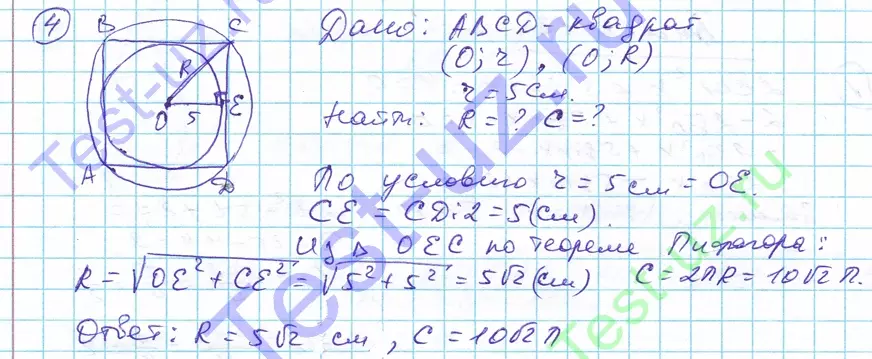 4
B C
Дано: ABCD - квадрат
(O; r), (O; R)
r = 5 см.
R
O 5 E
Найти: R = ? C = ?
A D
По условию r = 5 см = OE.
CE = CD:2 = 5 (см)
Из △ OEC по теореме Пифагора:
R = √OE² + CE² = √5² + 5² = 5√2 (см) C = 2πR = 10√2 π.
Ответ: R = 5√2 см, C = 10√2 π
Test-uz.ru
Test-uz.ru
Test-uz.ru